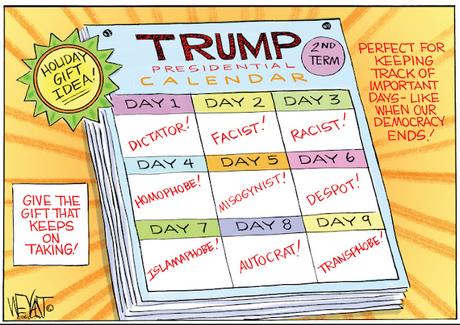 HOLIDAY
GIFT
IDEA!
TRUMP
PRESIDENTIAL
CALENDAR
2ND
TERM
PERFECT FOR
KEEPING
TRACK OF
IMPORTANT
DAYS - LIKE
WHEN OUR
DEMOCRACY
ENDS!
DAY 1
DICTATOR!
DAY 2
FACIST!
DAY 3
RACIST!
DAY 4
HOMOPHOBE!
DAY 5
MISOGYNIST!
DAY 6
DESPOT!
DAY 7
ISLAMAPHOBE!
DAY 8
AUTOCRAT!
DAY 9
TRANSPHOBE!
GIVE THE
GIFT THAT
KEEPS
ON
TAKING!